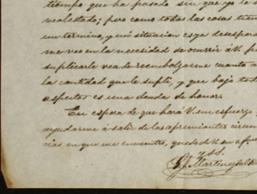 tiempo que ha pasado sin que yo lo
realestado; pero como todas las cosas tienen
un termino, y mi situacion es ya desesperada
me veo en la necesidad de ocurrir á V. p
suplicarle vea de reembolzarme cuanto a
la cantidad que le suplí, y que bajo todos
aspectos es una deuda de honor.
En espera de que hará V. un esfuerzo p
ayudarme á salir de las apremiantes circuns
cias en que me encuentro, quedo de V. afmo
y S.S.
Martinez